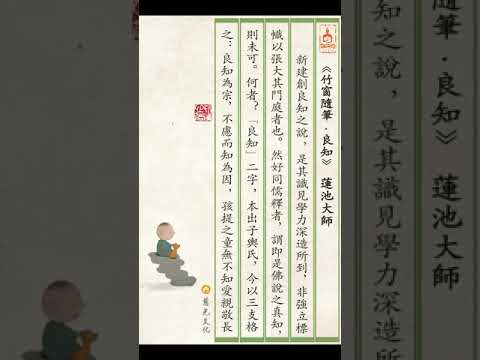 《竹窗隨筆．良知》 蓮池大師
新建創良知之說，是其識見學力深造所到，非強立標
幟以張大其門庭者也。然好同儒釋者，謂即是佛說之真知，
則未可。何者？「良知」二字，本出子輿氏，今以三支格
之：良知為宗，不慮而知為因，孩提之童無不知愛親敬長
光文化
良知》 蓮池大師
之說，是其識見學力深造所